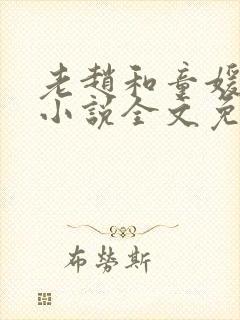 老趙和童媛
小說全文免
布勞斯